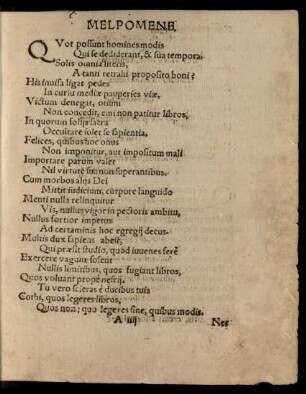 MELPOMENE.
QVot possunt homines modis
Qui se dediderant, & sua tempora
Solis omnia literis,
A tanti retrahi proposito boni?
His inuisa ligat pedes
In cursu mediæ pauperies viæ,
Victum denegat, otium
Non concedit, emi non patitur libros,
In quorum solet sacra
Occultare solet se sapientia.
Felices, quibus hoc onus
Non imponitur, aut impositum mali
Importare parum valet
Nil virtutẽ suorum superantibus.
Cum morbos alijs Dei
Mittit iudicium, corpore languido
Menti nulla relinquitur
Vis, nullus vigor in pectoris ambitu,
Nullus fortior impetus
Ad certaminis hoc egregij decus.
Multis dux sapiens abest,
Qui præsit studio, quod iuuenes ferè
Exercere vagum solent
Nullis limitibus, quos fugiant libros,
Quos voluant properè nescij.
Tu vero sceleras è ducibus tuis
Corhi, quos legeres libros,
Quos non; quo legeres fine, quibus modis.
A iiij Nec